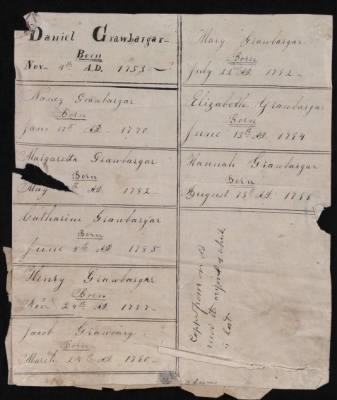 Daniel Grawbargar
Born
Nov. 4th A.D. 1753
Nancy Grawbargar
Born
June 17th AD. 1770
Margaretta Grawbargar
Born
May AD. 1782
Catharine Grawbargar
Born
June 8th AD. 1785
Henry Grawbargar
Born
Nov. 24th AD. 1787
Jacob
Born
March 24th AD. 1790
Mary Grawbargar
Born
July 22 AD. 1792
Elizabeth Grawbargar
Born
June 15th AD. 1794
Hannah Grawbargar
Born
August 15th AD.